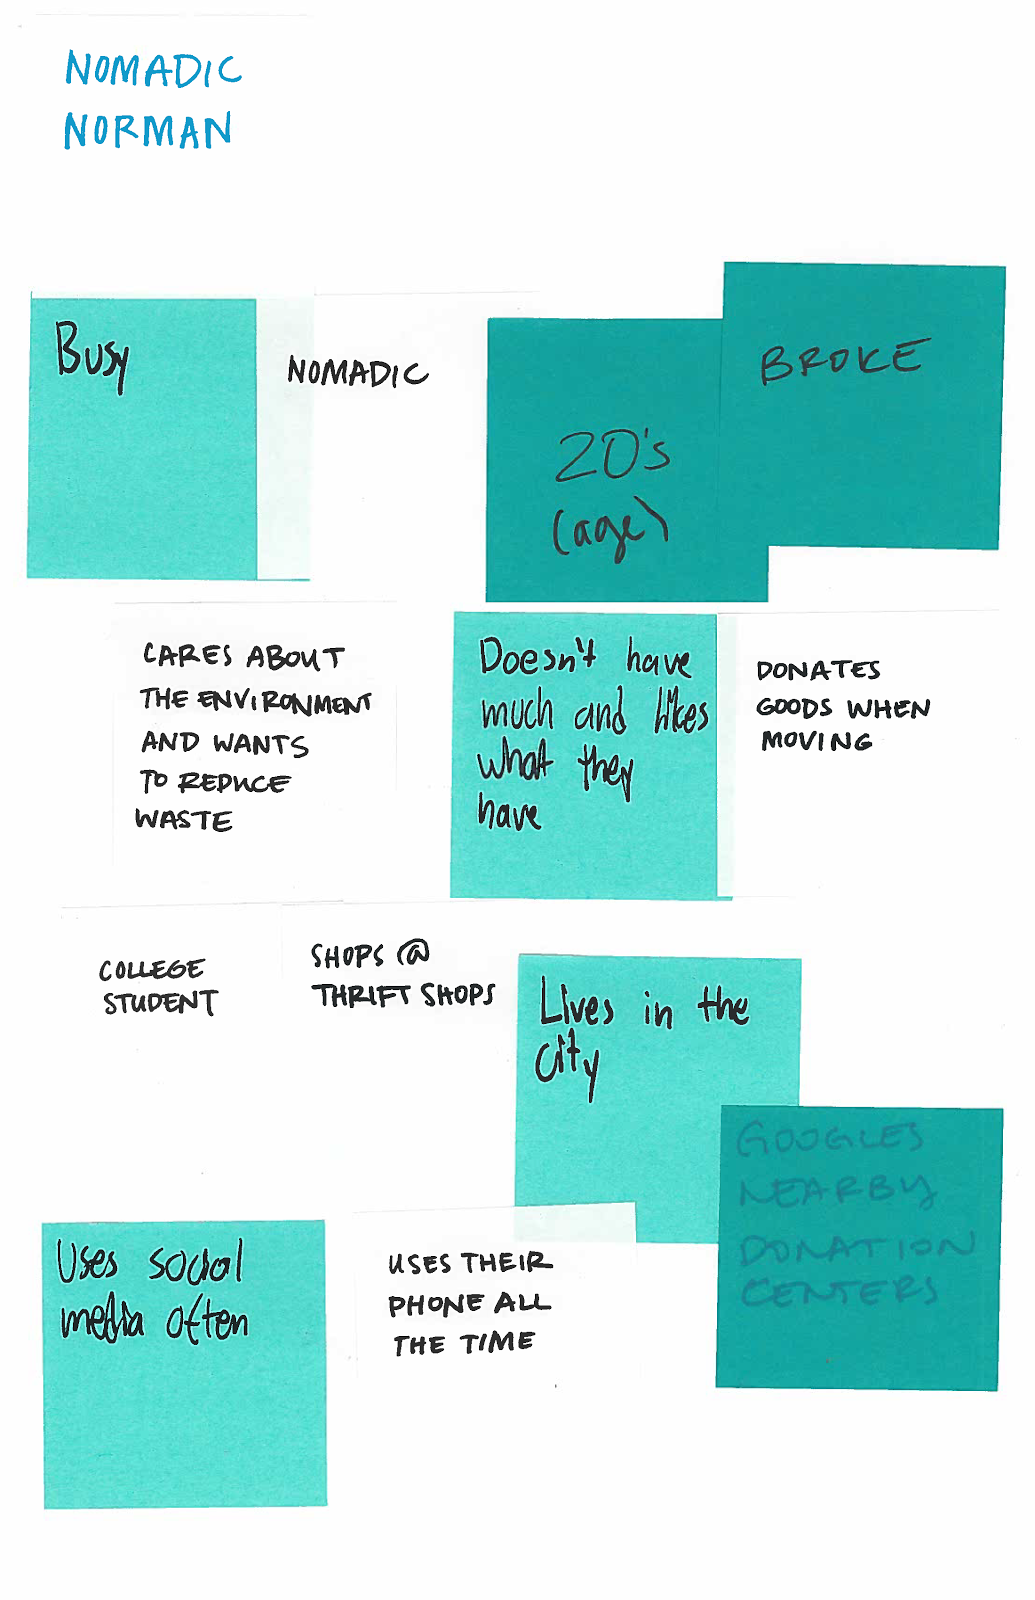 NOMADIC
NORMAN
Busy
NOMADIC
20's
(age)
BROKE
CARES ABOUT
THE ENVIRONMENT
AND WANTS
TO REDUCE
WASTE
Doesn't have
much and likes
what they
have
DONATES
GOODS WHEN
MOVING
COLLEGE
STUDENT
SHOPS @
THRIFT SHOPS
Lives in the
city
GOOGLES
NEARBY
DONATION
CENTERS
Uses social
media often
USES THEIR
PHONE ALL
THE TIME